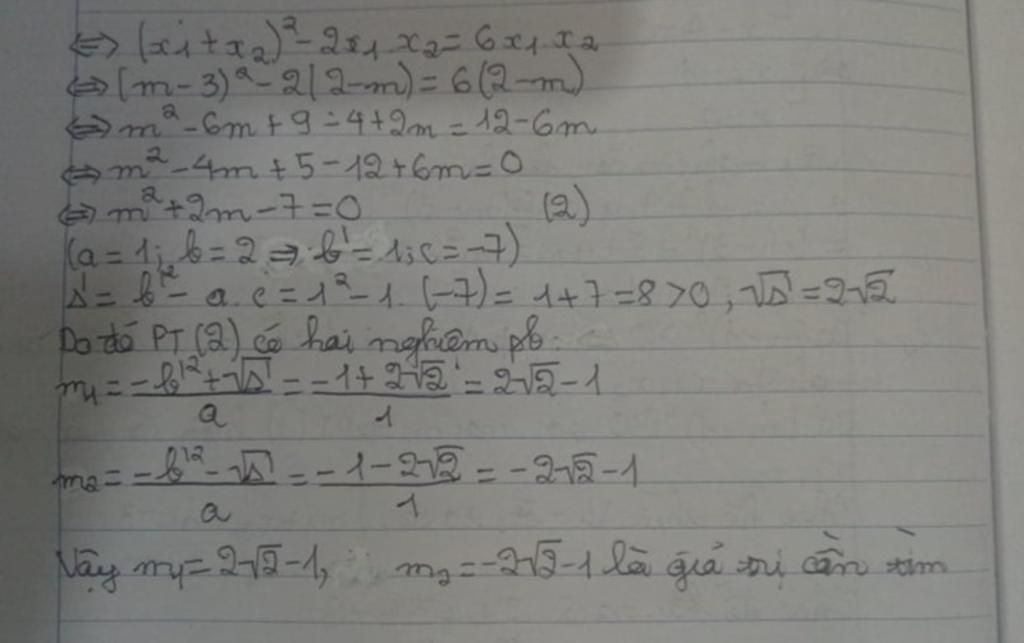 ⇔ (x₁+x₂)² - 2x₁.x₂ = 6x₁.x₂
⇔ (m-3)² - 2(2-m) = 6(2-m)
⇔ m² - 6m + 9 - 4 + 2m = 12 - 6m
⇔ m² - 4m + 5 - 12 + 6m = 0
⇔ m² + 2m - 7 = 0 (2)
(a = 1; b = 2 ⇒ b' = 1; c = -7)
Δ' = b'² - a.c = 1² - 1.(-7) = 1 + 7 = 8 > 0, √Δ' = 2√2
Do đó PT (2) có hai nghiệm pb:
m₁ = (-b'² + √Δ')/a = (-1 + 2√2)/1 = 2√2 - 1
m₂ = (-b'² - √Δ')/a = (-1 - 2√2)/1 = -2√2 - 1
Vậy m₁ = 2√2 - 1, m₂ = -2√2 - 1 là giá trị cần tìm